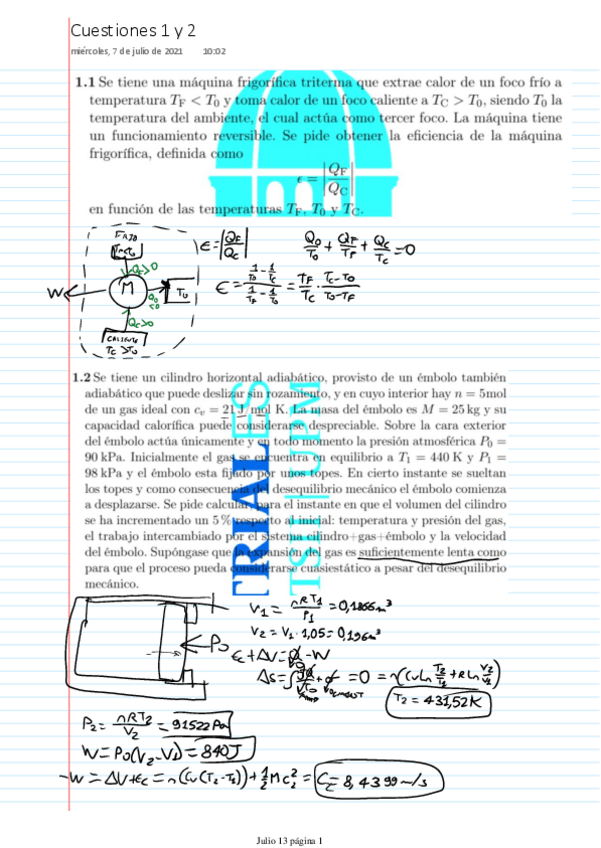 Cuestiones 1 y 2
miércoles, 7 de julio de 2021 10:02
1.1 Se tiene una máquina frigorífica triterma que extrae calor de un foco frío a
temperatura T_F < T_0 y toma calor de un foco caliente a T_C > T_0, siendo T_0 la
temperatura del ambiente, el cual actúa como tercer foco. La máquina tiene
un funcionamiento reversible. Se pide obtener la eficiencia de la máquina
frigorífica, definida como
ϵ = |Q_F/Q_C|
en función de las temperaturas T_F, T_0 y T_C.
FRÍO
T_F<T_0
Q_F>0
W
M
Q_0<0
T_0
Q_C>0
CALIENTE
T_C>T_0
ϵ=|Q_F/Q_C| Q_0/T_0 + Q_F/T_F + Q_C/T_C = 0
ϵ = (1/T_0 - 1/T_C)/(1/T_F - 1/T_0) = T_F/T_C · (T_C-T_0)/(T_0-T_F)
1.2 Se tiene un cilindro horizontal adiabático, provisto de un émbolo también
adiabático que puede deslizar sin rozamiento, y en cuyo interior hay n = 5mol
de un gas ideal con c_v = 21 J/mol K. La masa del émbolo es M = 25 kg y su
capacidad calorífica puede considerarse despreciable. Sobre la cara exterior
del émbolo actúa únicamente y en todo momento la presión atmosférica P_0 =
90 kPa. Inicialmente el gas se encuentra en equilibrio a T_1 = 440 K y P_1 =
98 kPa y el émbolo esta fijado por unos topes. En cierto instante se sueltan
los topes y como consecuencia del desequilibrio mecánico el émbolo comienza
a desplazarse. Se pide calcular, para el instante en que el volumen del cilindro
se ha incrementado un 5 % respecto al inicial: temperatura y presión del gas,
el trabajo intercambiado por el sistema cilindro+gas+émbolo y la velocidad
del émbolo. Supóngase que la expansión del gas es suficientemente lenta como
para que el proceso pueda considerarse cuasiestático a pesar del desequilibrio
mecánico.
TRIALES
ETSII UPM
P_0
V_1 = nRT_1/P_1 = 0,1866m³
V_2 = V_1·1,05 = 0,196m³
-W
ΔS = = 0 = n(C_v Ln T_2/T_1 + R Ln V_2/V_1)
T_2 = 431,52K
P_2 = nRT_2/V_2 = 91522 Pa
W = P_0(V_2-V_1) = 840J
-W = ΔU+E_C = n(C_v(T_2-T_1)) + 1/2 M c_2² = C_2 = 8,4399 m/s
Julio 13 página 1